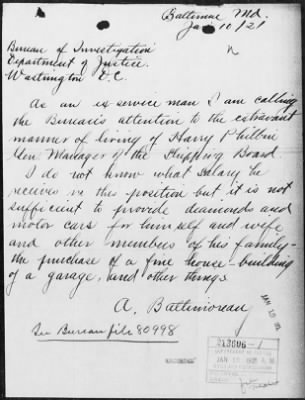 Baltimore Md.
Jan 10/21
Bureau of Investigation
Department of Justice.
Washington D.C.
As an ex service man I am calling
the Bureau's attention to the extravant
manner of living of Harry
Gen. Manager of the Shipping Board
I do not know what salary he
receives in this position but it is not
sufficient to provide deamonds and
motor cars for him self and wife
and other members of his family-
the purchase of a fine house - building
of a garage. and other things.
A. Baltimorean
See Bureau file 80998
JAN 13